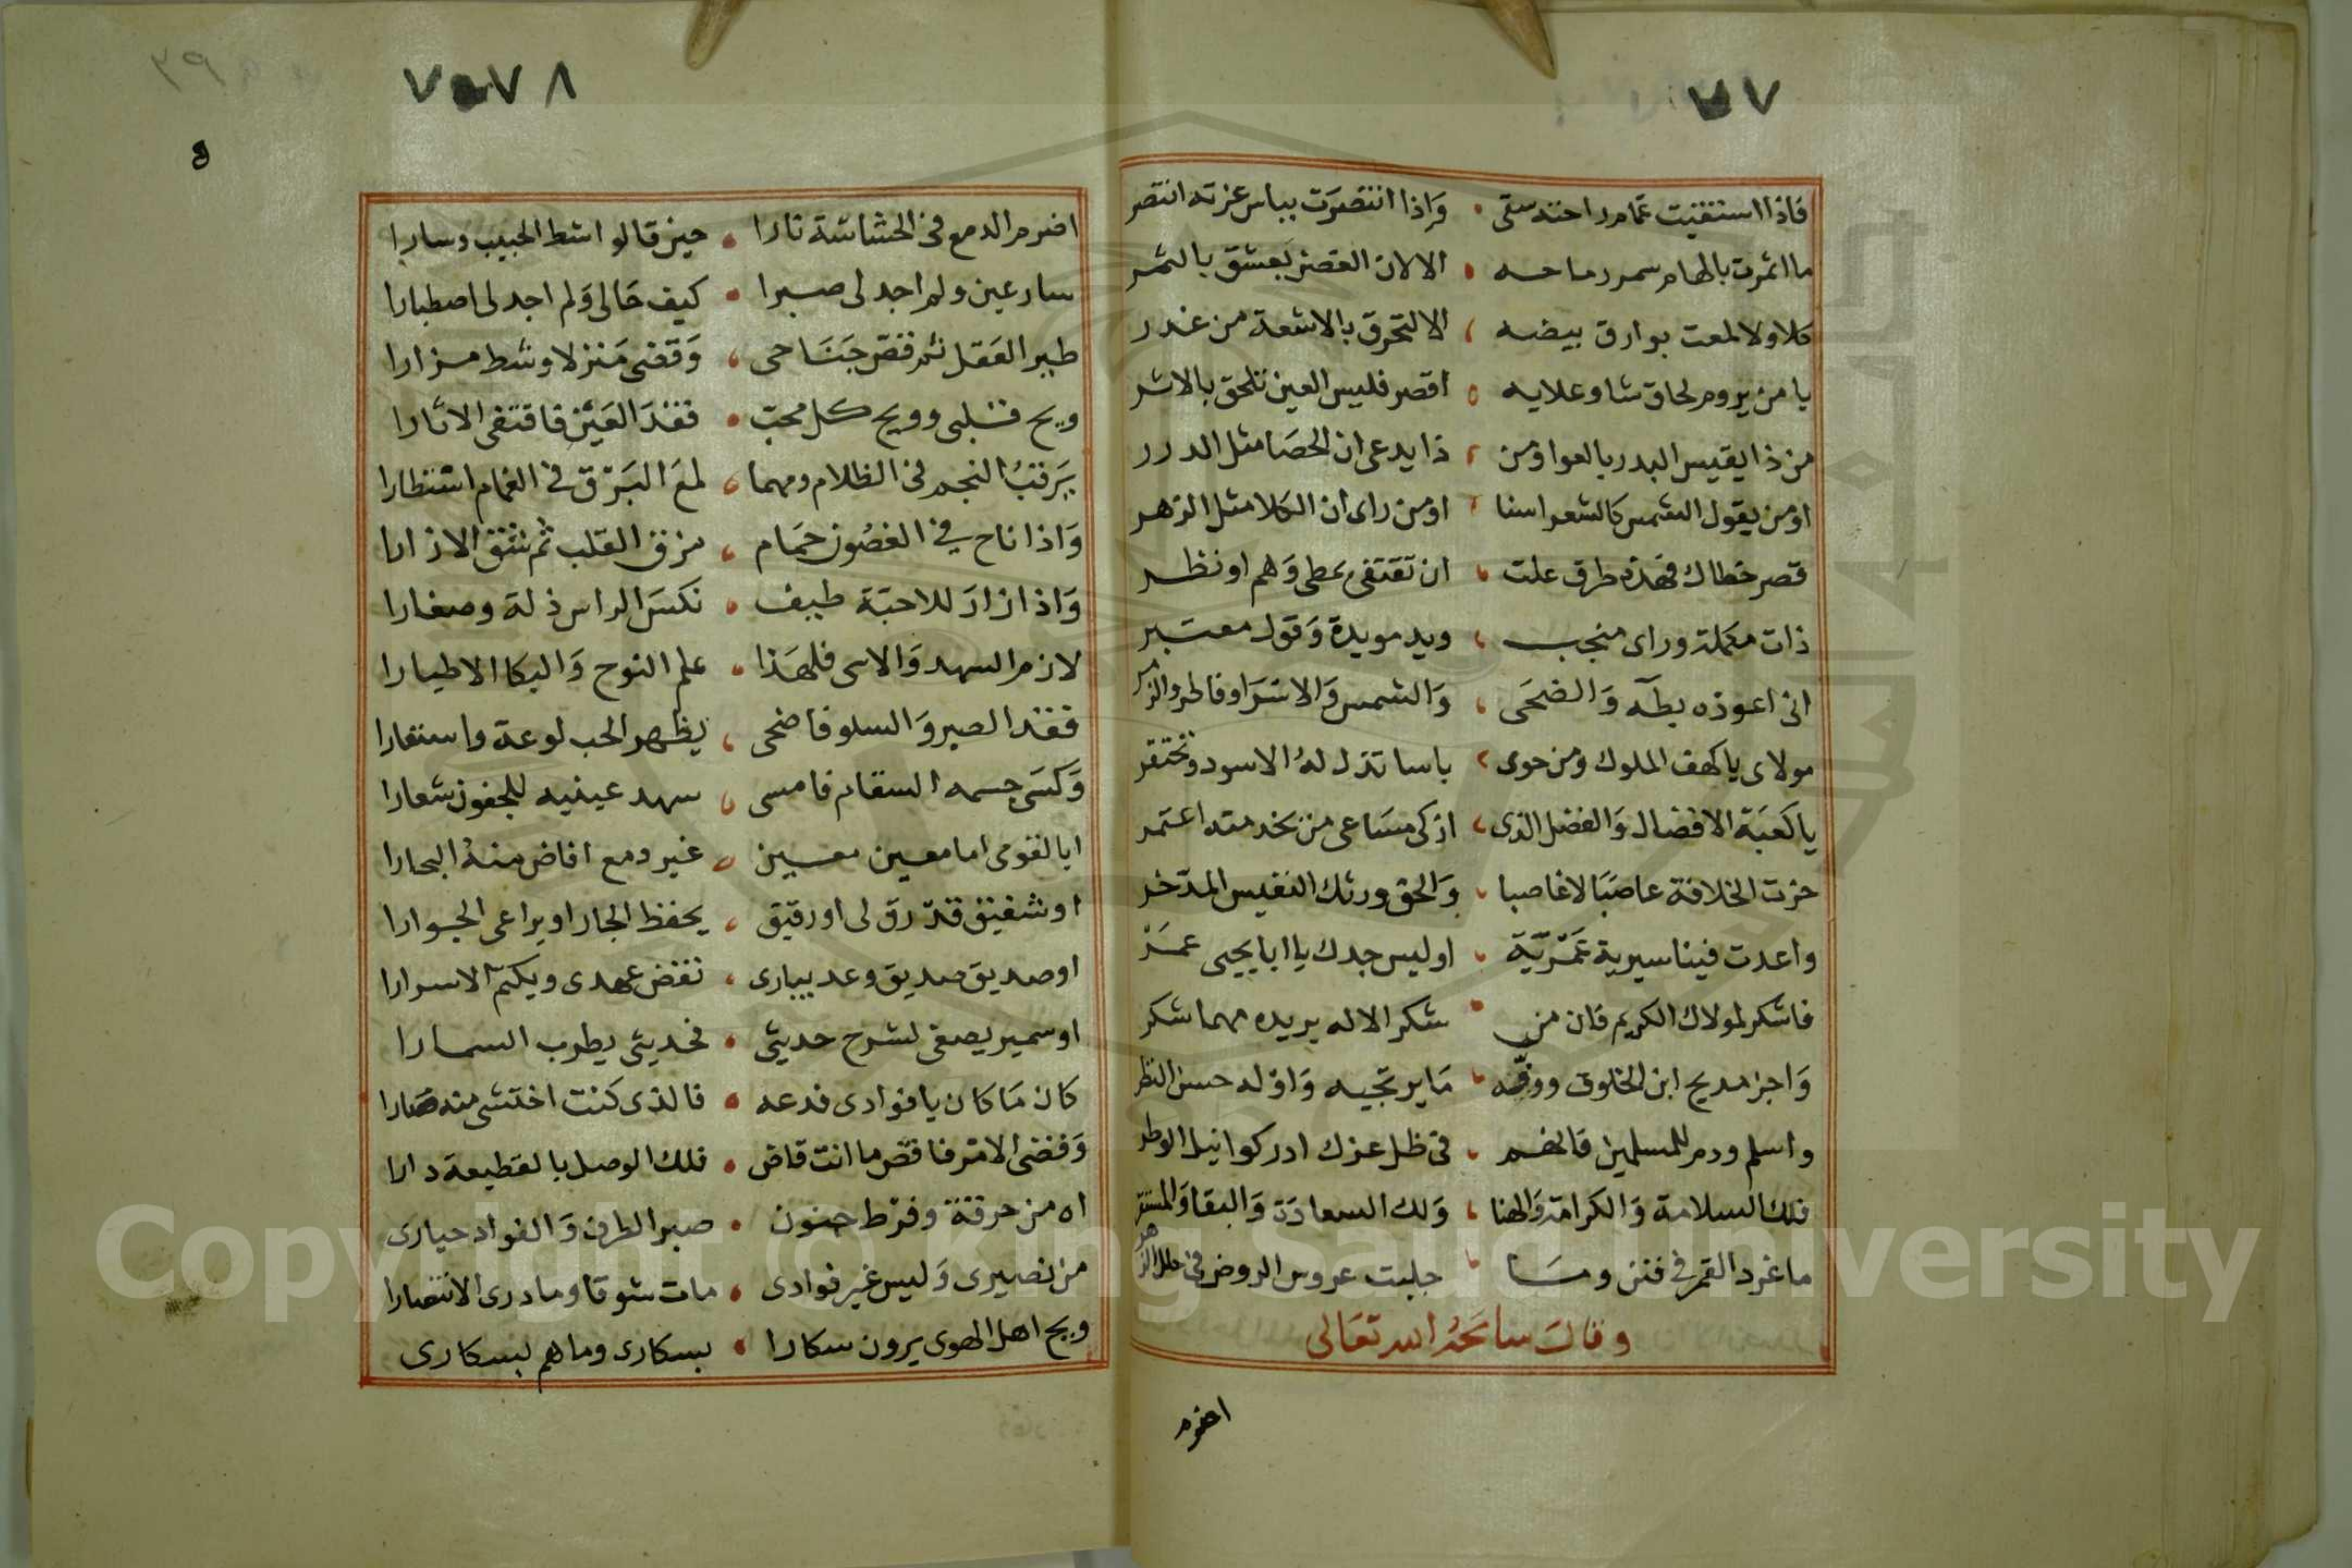 ٧٧
فاذا استقيت غمام راحته سقى وَاذا انتصرَت بباس عزته انتصر
ما اثمرت بالهام سمر رماحه الا لان الغصن يَعشق بالثمر
كلا ولا لمعت بوارق بيضه الا لتحرق بالاشعة من غدر
يا من يروم لحاق شاو علايه اقصر فليس العين تلحق بالاثر
من ذا يقيس البدر بالعوا ومن ذا يدعى ان الحصَا مثل الدرر
اومن يقول الشمس كالشعرا سنا اومن راى ان الكلا مثل الزهر
قصر خطاك فهذه طرق علت ان تقتفى بخطى وَهم او نظر
ذات مكملة وراى منجب ويد مويدة وَقول معتبر
انى اعوذه بطَه وَالضحَى وَالشمس وَالاسرَا وفاطر والزمر
مولاى يا كهف الملوك ومن حوى باسا تذل لهُ الاسود وتحتقر
يا كعبَة الافضال وَالفضل الذى ازكى مسَاعى من بخدمته اعتمر
حزت الخلافة عاصبًا لا غاصبا وَالحق ورثك النفيس المدّخر
واعدت فينا سيرية عمَريّة اوليس جدك يا ابا يحيى عمَرْ
فاشكر لمولاك الكريم فان من شكر الاله يريده مهما شكر
وَاجز مديح ابن الخلوف ووفّه مَا يرتجيه وَاوله حسن النظر
واسلم ودم للمسلمين فانهم فى ظل عزك ادركوا نيل الوطر
فلك السلامة وَالكرامة وَالهنا وَلك السعادَة وَالبقا وَ
ما غرد القمرى فى فنن ومَا جليت عروس الروض فى حلل الزهر
وقالَ سامَحَهُ الله تعَالى
اضرم
٧٨
اضرم الدمع فى الحشاشة نارا حين قالوا شط الحبيب وسارا
سار عين ولم اجد لى صبرا كيف حَالى وَلم اجد لى اصطبارا
طير العَقل ثم قصّ جَنَاحى وَقضى مَنزلا وشط مزارا
ويح قلبى وويح كل محبّ فقدَ العَيْن فاقتفى الاثارا
يَرقبُ النجم فى الظلام ومهما لمعَ البَرْق فى الغمام استطارا
وَاذا ناح فى الغصُون حَمَام مزق القلب ثم شق الازارا
وَاذا زارَ للاحبّة طيف نكسَ الراس ذلة وصغارا
لازم السهد وَالاسى فلهَذا علم النوح وَالبكا الاطيارا
فقد الصبر وَالسلو فاضحى يظهر الحب لوعة واستعارا
وَكسَى جسمه السقام فامسى سهد عينيه للجفون شعارا
ايا لقومى اما معين معين غير دمع افاض منهُ البحارا
او شفيق قدّ رق لى او رقيق يحفظ الجار او يراعى الجوارا
او صديق صديق وعد يبارى نقض عهدى ويكتم الاسرارا
او سمير يصغى لشرح حديثى فحديثى يطرب السمارا
كان مَا كان يا فوادى فدعه فالذى كنت اختشى منه صَارا
وَقضى الامْر فاقض ما انت قاض فلك الوصل بالقطيعة دارا
اه من حرقة وفرْط جنون صبر الطرف وَالفواد حيارى
من نصيرى وَليس غير فوادى مات شوقا وما درى الانتصارا
ويح اهل الهوى يرون سكارا بسكارى وما هم بسكارى
Copyright © King Saud University